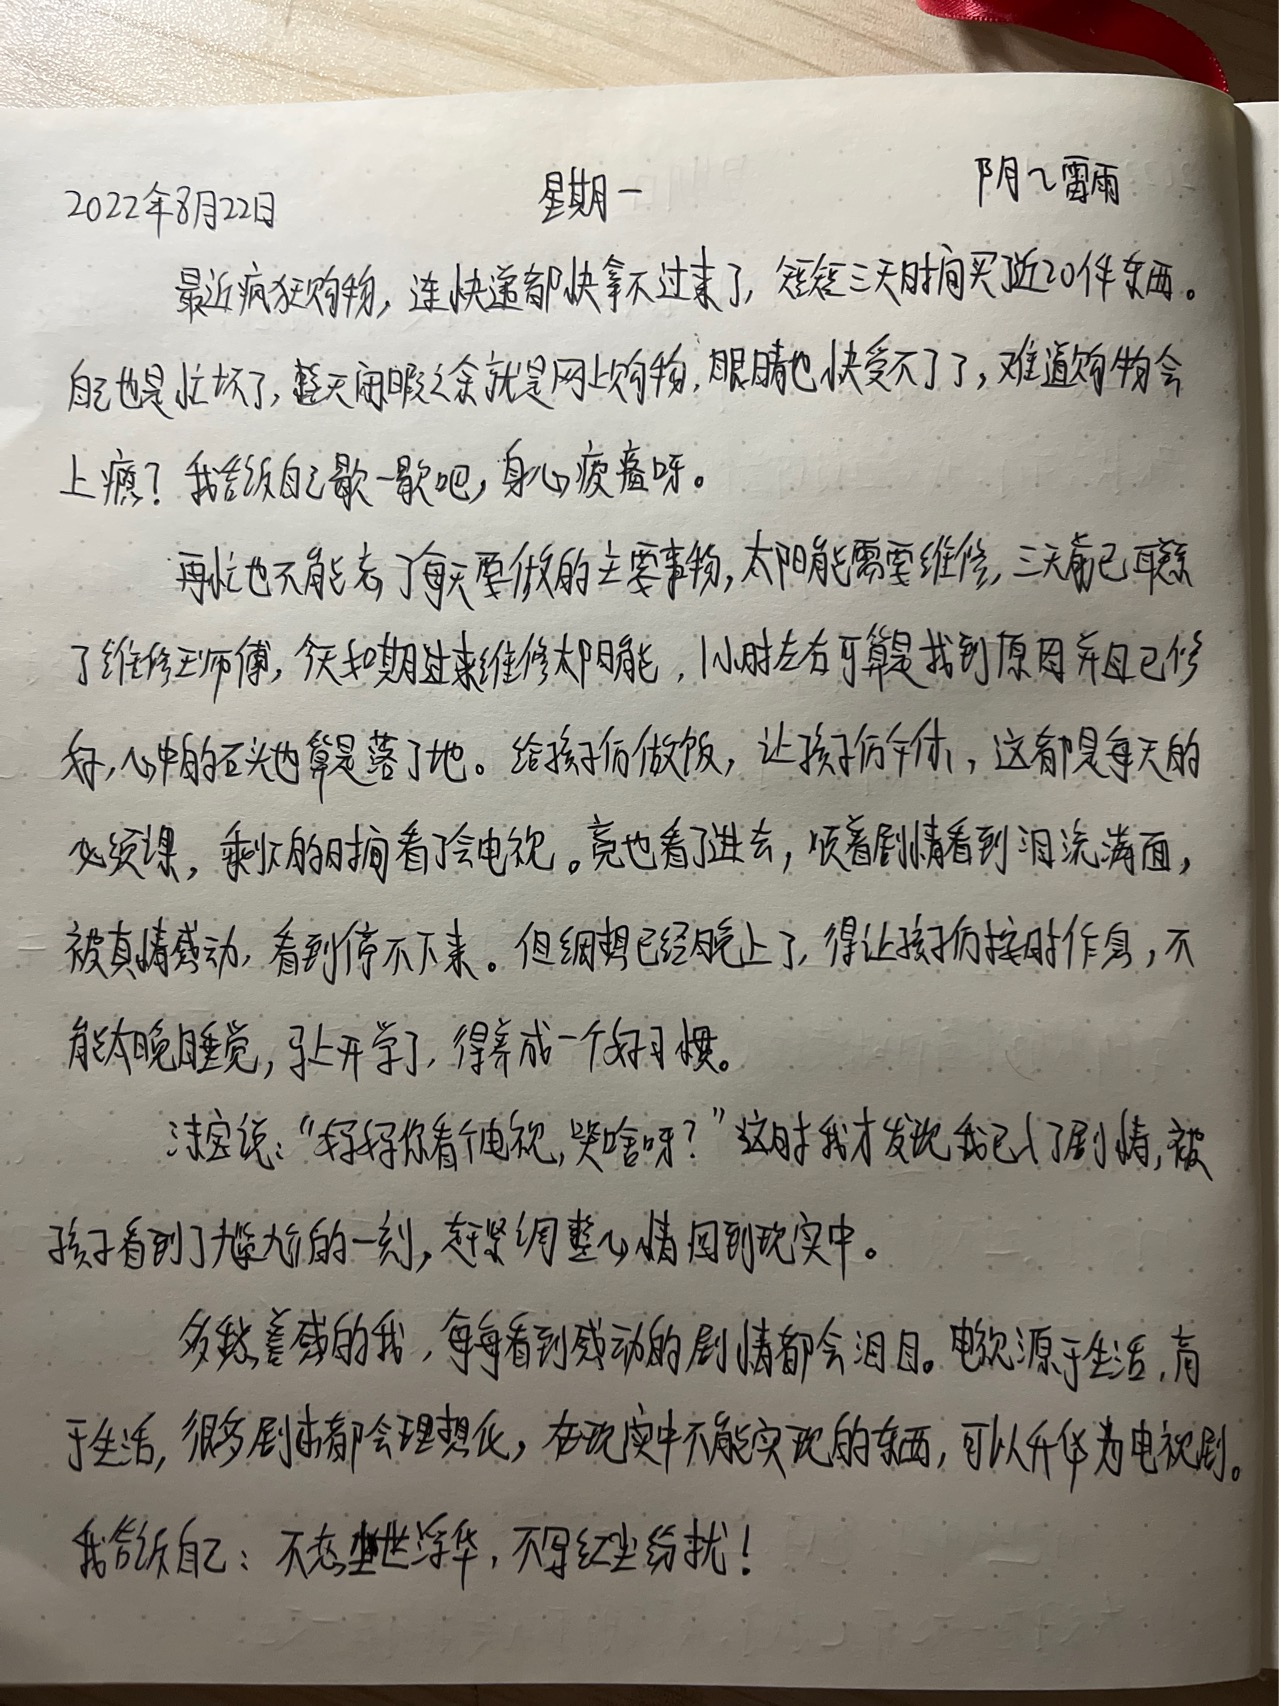 2022年8月22日 星期一 阴~雷雨
最近疯狂购物，连快递都快拿不过来了，短短三天时间买了近20件东西。
自己也是忙坏了，整天闲暇之余就是网上购物，眼睛也快受不了了，难道购物会
上瘾？我告诉自己歇一歇吧，身心疲惫呀。
再忙也不能忘了每天要做的主要事物，太阳能需要维修，三天前已联系
了维修王师傅，今天如期过来维修太阳能，1小时左右可算是找到原因并且已修
好，心中的石头也算是落了地。给孩子们做饭，让孩子们午休，这都是每天的
必须课，剩下的时间看了会电视。竟也看了进去，顺着剧情看到泪流满面，
被真情感动，看到停不下来。但细想已经晚上了，得让孩子们按时作息，不
能太晚睡觉，马上开学了，得养成一个好习惯。
沫宝说：“好好你看个电视，哭啥呀？”这时我才发现我已入了剧情，被
孩子看到了尴尬的一刻，赶紧调整心情回到现实中。
多愁善感的我，每每看到感动的剧情都会泪目。电视源于生活，高
于生活，很多剧本都会理想化，在现实中不能实现的东西，可以升华为电视剧。
我告诉自己：不恋尘世浮华，不写红尘纷扰！